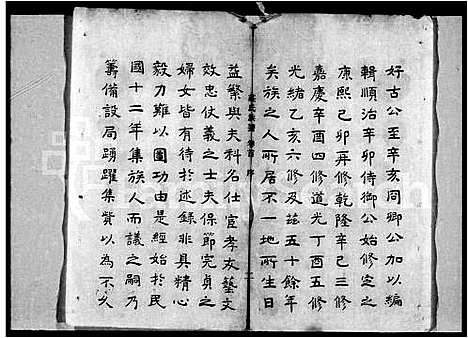 好古公至辛亥同卿公加以編
輯順治辛卯侍御公始修定之
康熙己卯再修乾隆辛巳三修
嘉慶辛酉四修道光丁酉五修
光緒乙亥六修及茲五十餘年
矣族之人所居不一地所生日
益繁與夫科名仕宦孝友藝文
效忠仗義之士夫保節完貞之
婦女皆有待於述錄非具精心
毅力難以圖功由是經始於民
國十二年集族人而議之嗣乃
籌備設局踴躍集貲以為不久